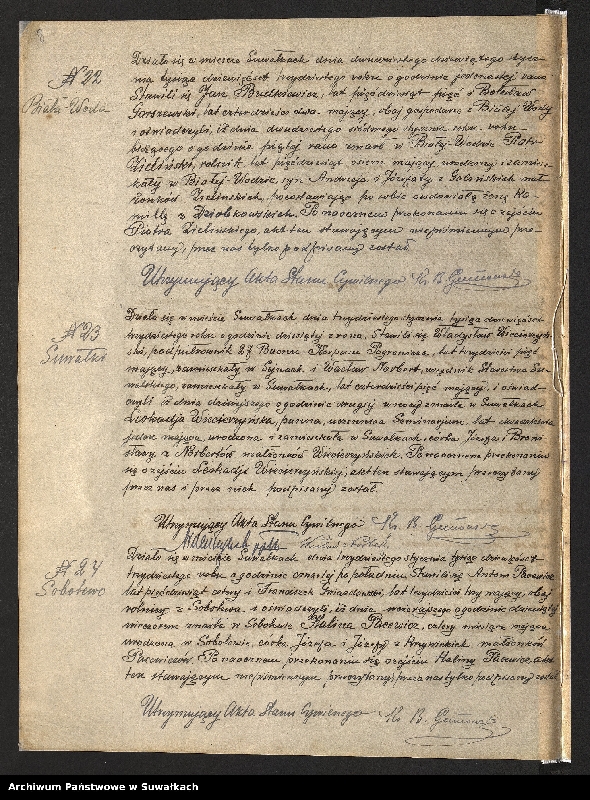 N 22
Biała-Woda
Działo się w mieście Suwałkach dnia dwudziestego dziewiątego stycz-
nia tysiąc dziewięćset trzydziestego roku o godzinie jedenastej rano
Stawili się Jan lat pięćdziesiąt pięć i Bolesław
lat czterdzieści dwa mający, obaj gospodarze z Białej Wody
i oświadczyli, iż dnia dwudziestego siódmego stycznia roku
bieżącego o godzinie piątej rano zmarł w Białej-Wodzie Piotr
Zieliński, rolnik lat pięćdziesiąt osiem mający urodzony i zamiesz-
kały w Białej-Wodzie, syn Andrzeja i Józefaty z mał-
żonków Zielińskich, pozostawiając po sobie owdowiałą żonę Ka-
milę z Dziobkowskich. Po naocznem przekonaniu się o zejściu
Piotra Zielińskiego, akt ten stawającym niepiśmiennym prze-
czytany, przez nas tylko podpisany został
Utrzymujący Akta Stanu Cywilnego Ks. B.
N 23
Suwałki
Działo się w mieście Suwałkach dnia trzydziestego stycznia tysiąc dziewięćset
trzydziestego roku o godzinie dziesiątej z rana, Stawili się Władysław
podpułkownik 27 Baonu Korpusu Pogranicza, lat trzydzieści pięć
mający, zamieszkały w Sejnach i Wacław Norbert, urzędnik Starostwa Su-
walskiego, zamieszkały w Suwałkach, lat czterdzieści pięć mający, i oświad-
czyli iż dnia dzisiejszego o godzinie drugiej w nocy zmarła w Suwałkach
Leokadja panna, uczennica Seminarjum, lat dwadzieścia
jeden mająca, urodzona i zamieszkała w Suwałkach, córka Józefa i Broni-
sławy z Norbertów małżonków Po naocznem przekonaniu
się o zejściu Leokadji akt ten stawającym przeczytany
przez nas i przez nich podpisany został.
Utrzymujący Akta Stanu Cywilnego Ks. B.
N 24
Sobolewo
Działo się w mieście Suwałkach dnia trzydziestego stycznia tysiąc dziewięćset
trzydziestego roku o godzinie czwartej po południu Stawili się Antoni Pacewicz
lat pięćdziesiąt cztery i Franciszek lat trzydzieści trzy mający, obaj
rolnicy z Sobolewa i oświadczyli, iż dnia wczorajszego o godzinie dziewiątej
wieczorem zmarła w Sobolewie Halina Pacewicz, cztery miesiące mająca,
urodzona w Sobolewie, córka Józefa i Józefy z małżonków
Pacewiczów. Po naocznem przekonaniu się o zejściu Haliny Pacewicz, akt
ten stawającym niepiśmiennym przeczytany, przez nas tylko podpisany został
Utrzymujący Akta Stanu Cywilnego Ks. B.
Archiwum Państwowe w Suwałkach